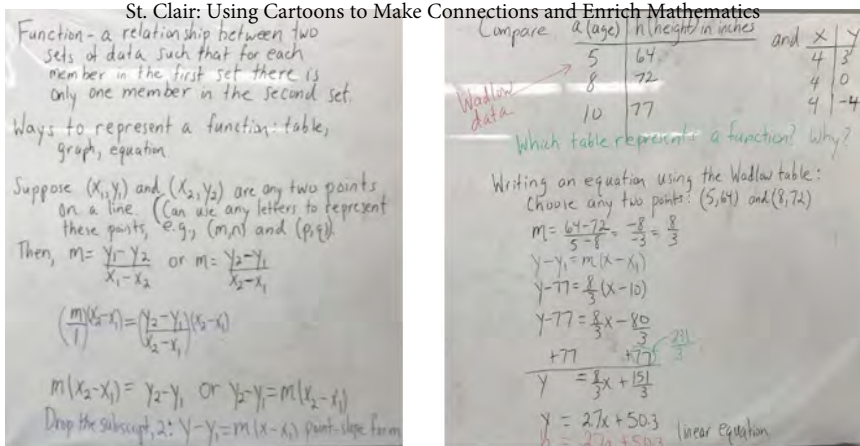 St. Clair: Using Cartoons to Make Connections and Enrich Mathematics
Function - a relationship between two
sets of data such that for each
member in the first set there is
only one member in the second set.
Ways to represent a function: table,
graph, equation
Suppose (x₁, y₁) and (x₂, y₂) are any two points
on a line. (Can use any letters to represent
these points, e.g., (m,n) and (p,q))
Then, m = (y₁-y₂)/(x₁-x₂) or m = (y₂-y₁)/(x₂-x₁)
(m/1)(x₂-x₁) = ((y₂-y₁)/(x₂-x₁))(x₂-x₁)
m(x₂-x₁) = y₂-y₁ or y₂-y₁ = m(x₂-x₁)
Drop the subscript, 2: y-y₁ = m(x-x₁) point-slope form
Compare a (age) | h (height) in inches and x | y
5 | 64 4 | 3
8 | 72 4 | 0
10 | 77 4 | -4
Wadlow
data
Which table represents a function? Why?
Writing an equation using the Wadlow table:
Choose any two points: (5,64) and (8,72)
m = (64-72)/(5-8) = -8/-3 = 8/3
y-y₁ = m(x-x₁)
y-77 = 8/3(x-10)
y-77 = 8/3x - 80/3
+77 +77 231/3
y = 8/3x + 151/3
y = 27x + 50.3 linear equation
h = 27a + 50.3